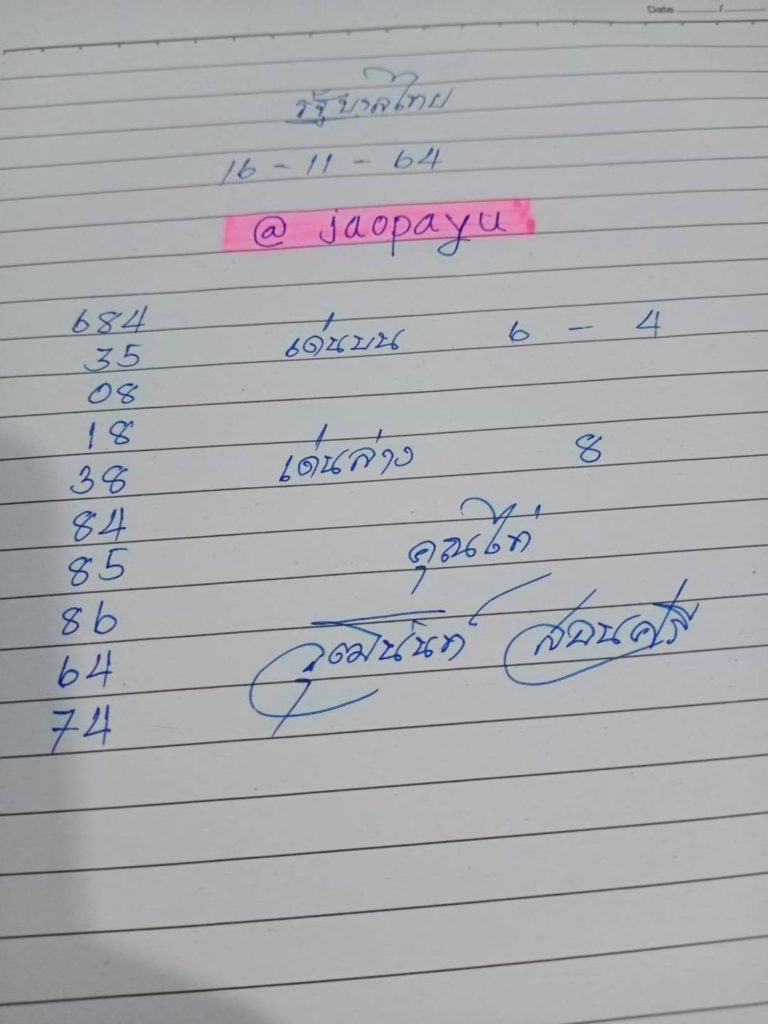 Date ____/____
รัฐบาลไทย
16 - 11 - 64
@ jaopayu
684
35 เด่นบน 6 - 4
08
18
38 เด่นล่าง 8
84
85 คุณไก่
86
64 วุฒินันท์ สอนศรี
74